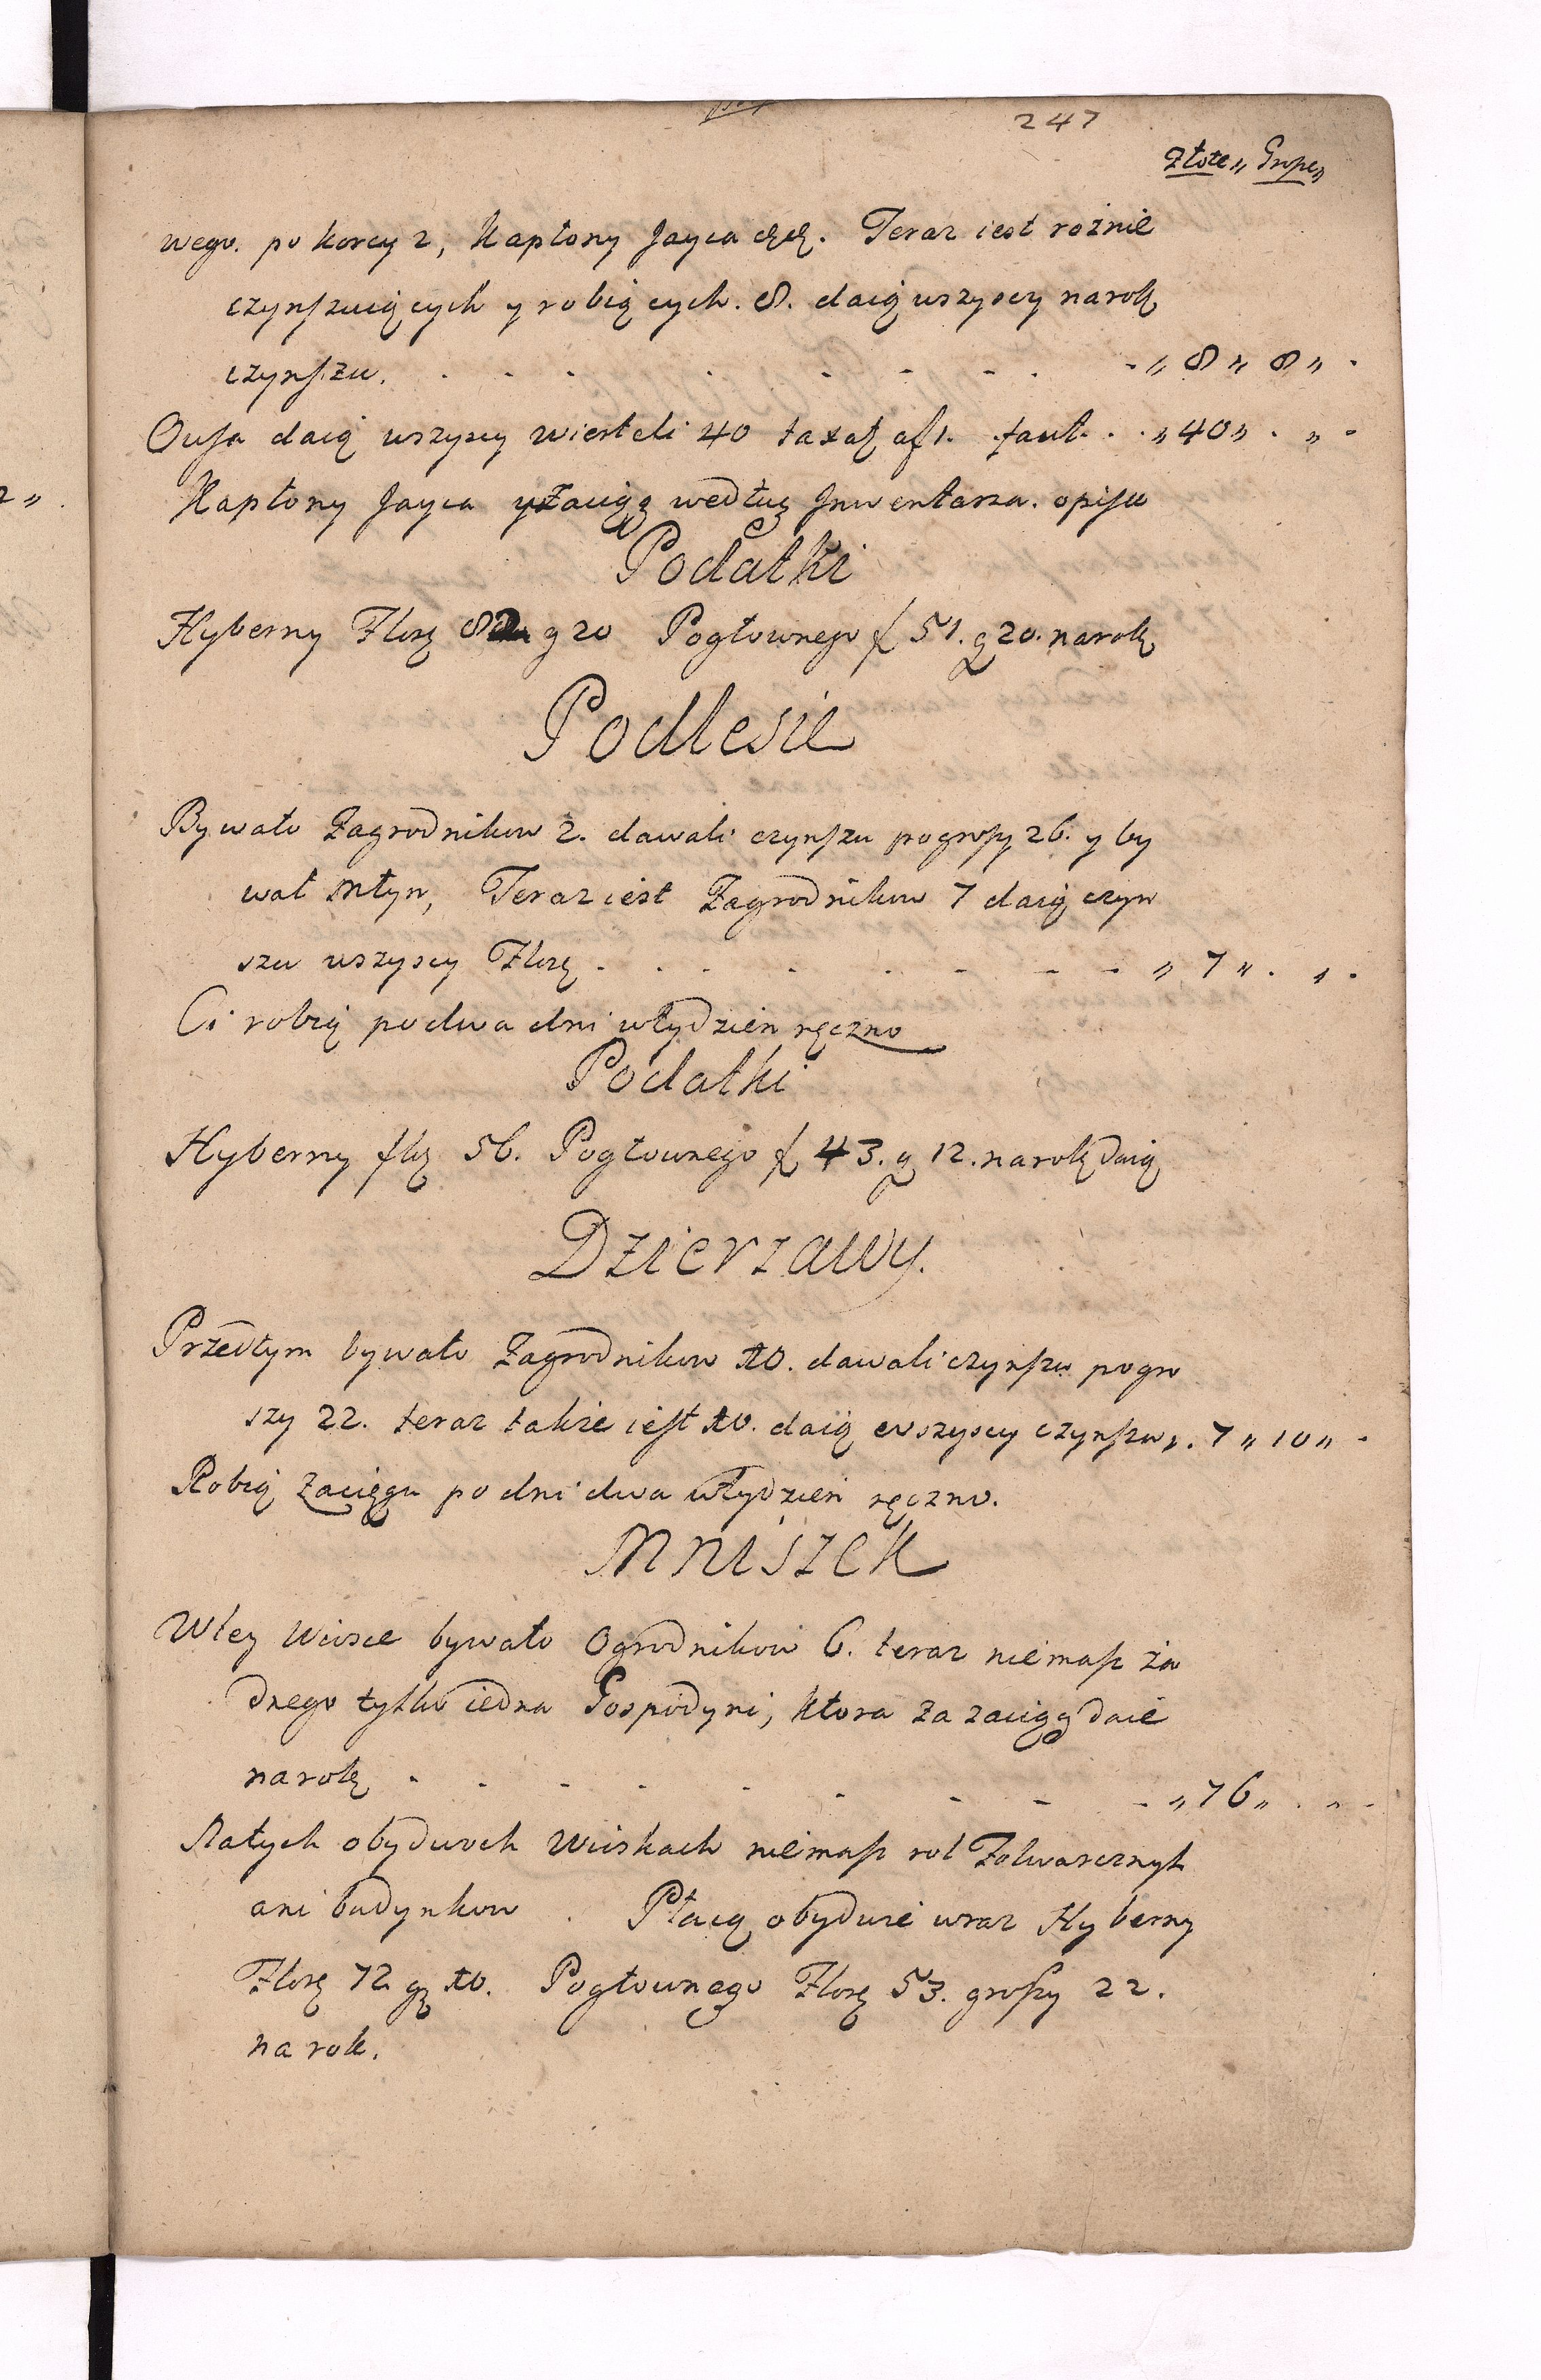 247
Złote „ Grosze „
wego. po korcy 2, Kapłony Jayca etc. Teraz iest rożnie
czynszuiących y robiących. 8. daią wszyscy narok
czynszu. . . . . . . . . . „ 8 „ 8 „ .
Owsa daią wszyscy wierteli 40 taxat a f 1. facit. . . „ 40 „ . „ .
Kapłony Jayca y Zaciągą według Jnwentarza. opisu
Podatki
Hyberny Florę 82 g 20 Pogłownego f 51. g 20. narok
Podlesie
Bywało Zagrodnikow 2. dawali czynszu pogroszy 26. y by
wał Młyn, Teraz iest Zagrodnikow 7 daią czyn
szu wszyscy Florę . . . . . . . . „ 7 „ . „ .
Ci robią po dwa dni wtydzien ręczno
Podatki
Hyberny flę 56. Pogłownego f 43. g 12. narok daią
Dzierzawy.
Przedtym bywało Zagrodnikow 10. dawali czynszu pogro
szy 22. teraz także iest 10. daią wszyscy czynszu „. 7 „ 10 „ .
Robią Zaciągu po dni dwa wtydzien ręczno.
Mniszek
Wtey Wiosce bywało Ogrodnikow 6. teraz niemasz ża
dnego tylko iedna Gospodyni, ktora za zaciągą daie
narok . . . . . . . . . . „ 76 „ . „ .
Natych obydwoch Wioskach niemasz rol Folwarcznych
ani budynkow . Płacą obydwie wraz Hyberny
Florę 72 g 10. Pogłownego Florę 53. groszy 22.
na rok.